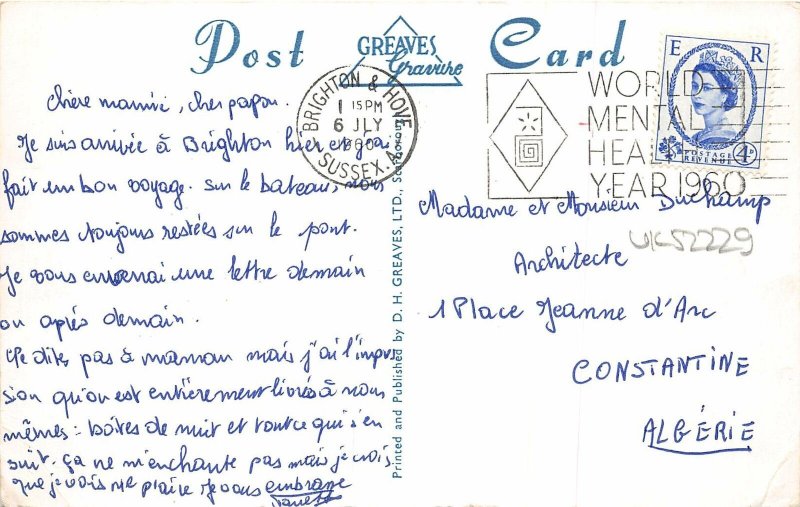 Post Card
GREAVES
Gravure
BRIGHTON & HOVE
1 15 PM
6 JLY
1960
SUSSEX. A
WORLD
MENTAL
HEAL
YEAR 1960
E R
POSTAGE
REVENUE
4D
chère mamie, cher papou.
Je suis arrivée à Brighton hier et j'ai
fait un bon voyage. sur le bateau, nous
sommes toujours restées sur le pont.
Je vous enverrai une lettre demain
ou après demain.
Ne dites pas à maman mais j'ai l'impres
sion qu'on est entièrement livrés à nous
mêmes : boîtes de nuit et tout ce qui s'en
suit. ça ne m'enchante pas mais je vois
que je vais me plaire Je vous embrasse
Printed and Published by D. H. GREAVES, LTD., Scarborough
Madame et Monsieur Duchamp
UK52229
Architecte
1 Place Jeanne d'Arc
CONSTANTINE
ALGÉRIE